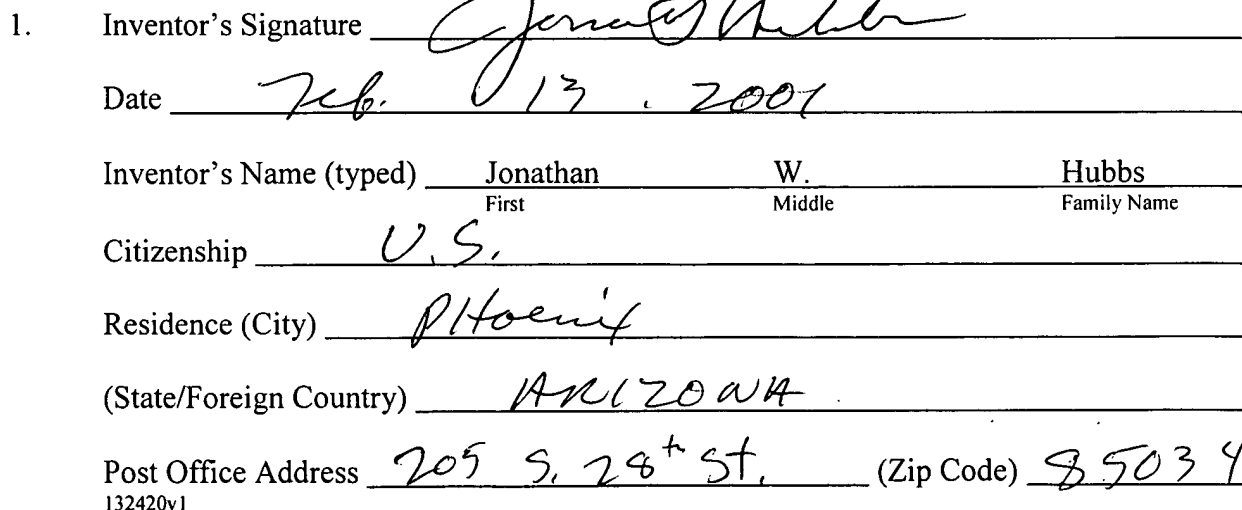 1. Inventor's Signature
Date Feb. 13, 2001
Inventor's Name (typed) Jonathan W. Hubbs
First Middle Family Name
Citizenship U.S.
Residence (City) PHoenix
(State/Foreign Country) ARIZONA
Post Office Address 205 S. 28th St. (Zip Code) 85034
132420v1